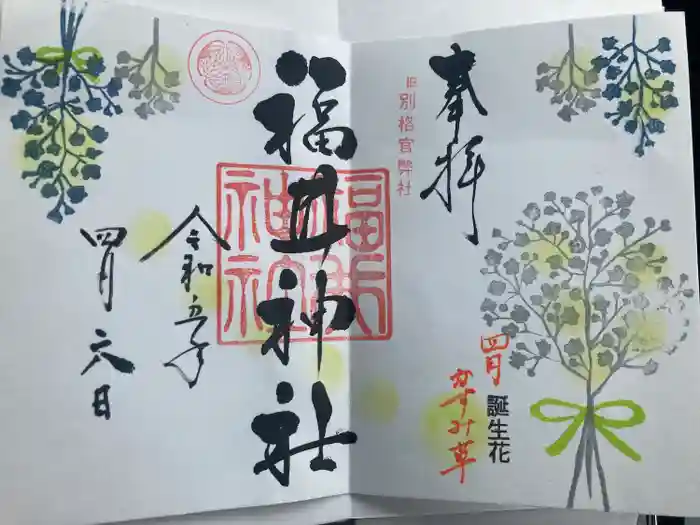 奉拝
旧別格官弊社
四月
誕生花
かすみ草
福井神社
福井
神社
令和五年
四月六日